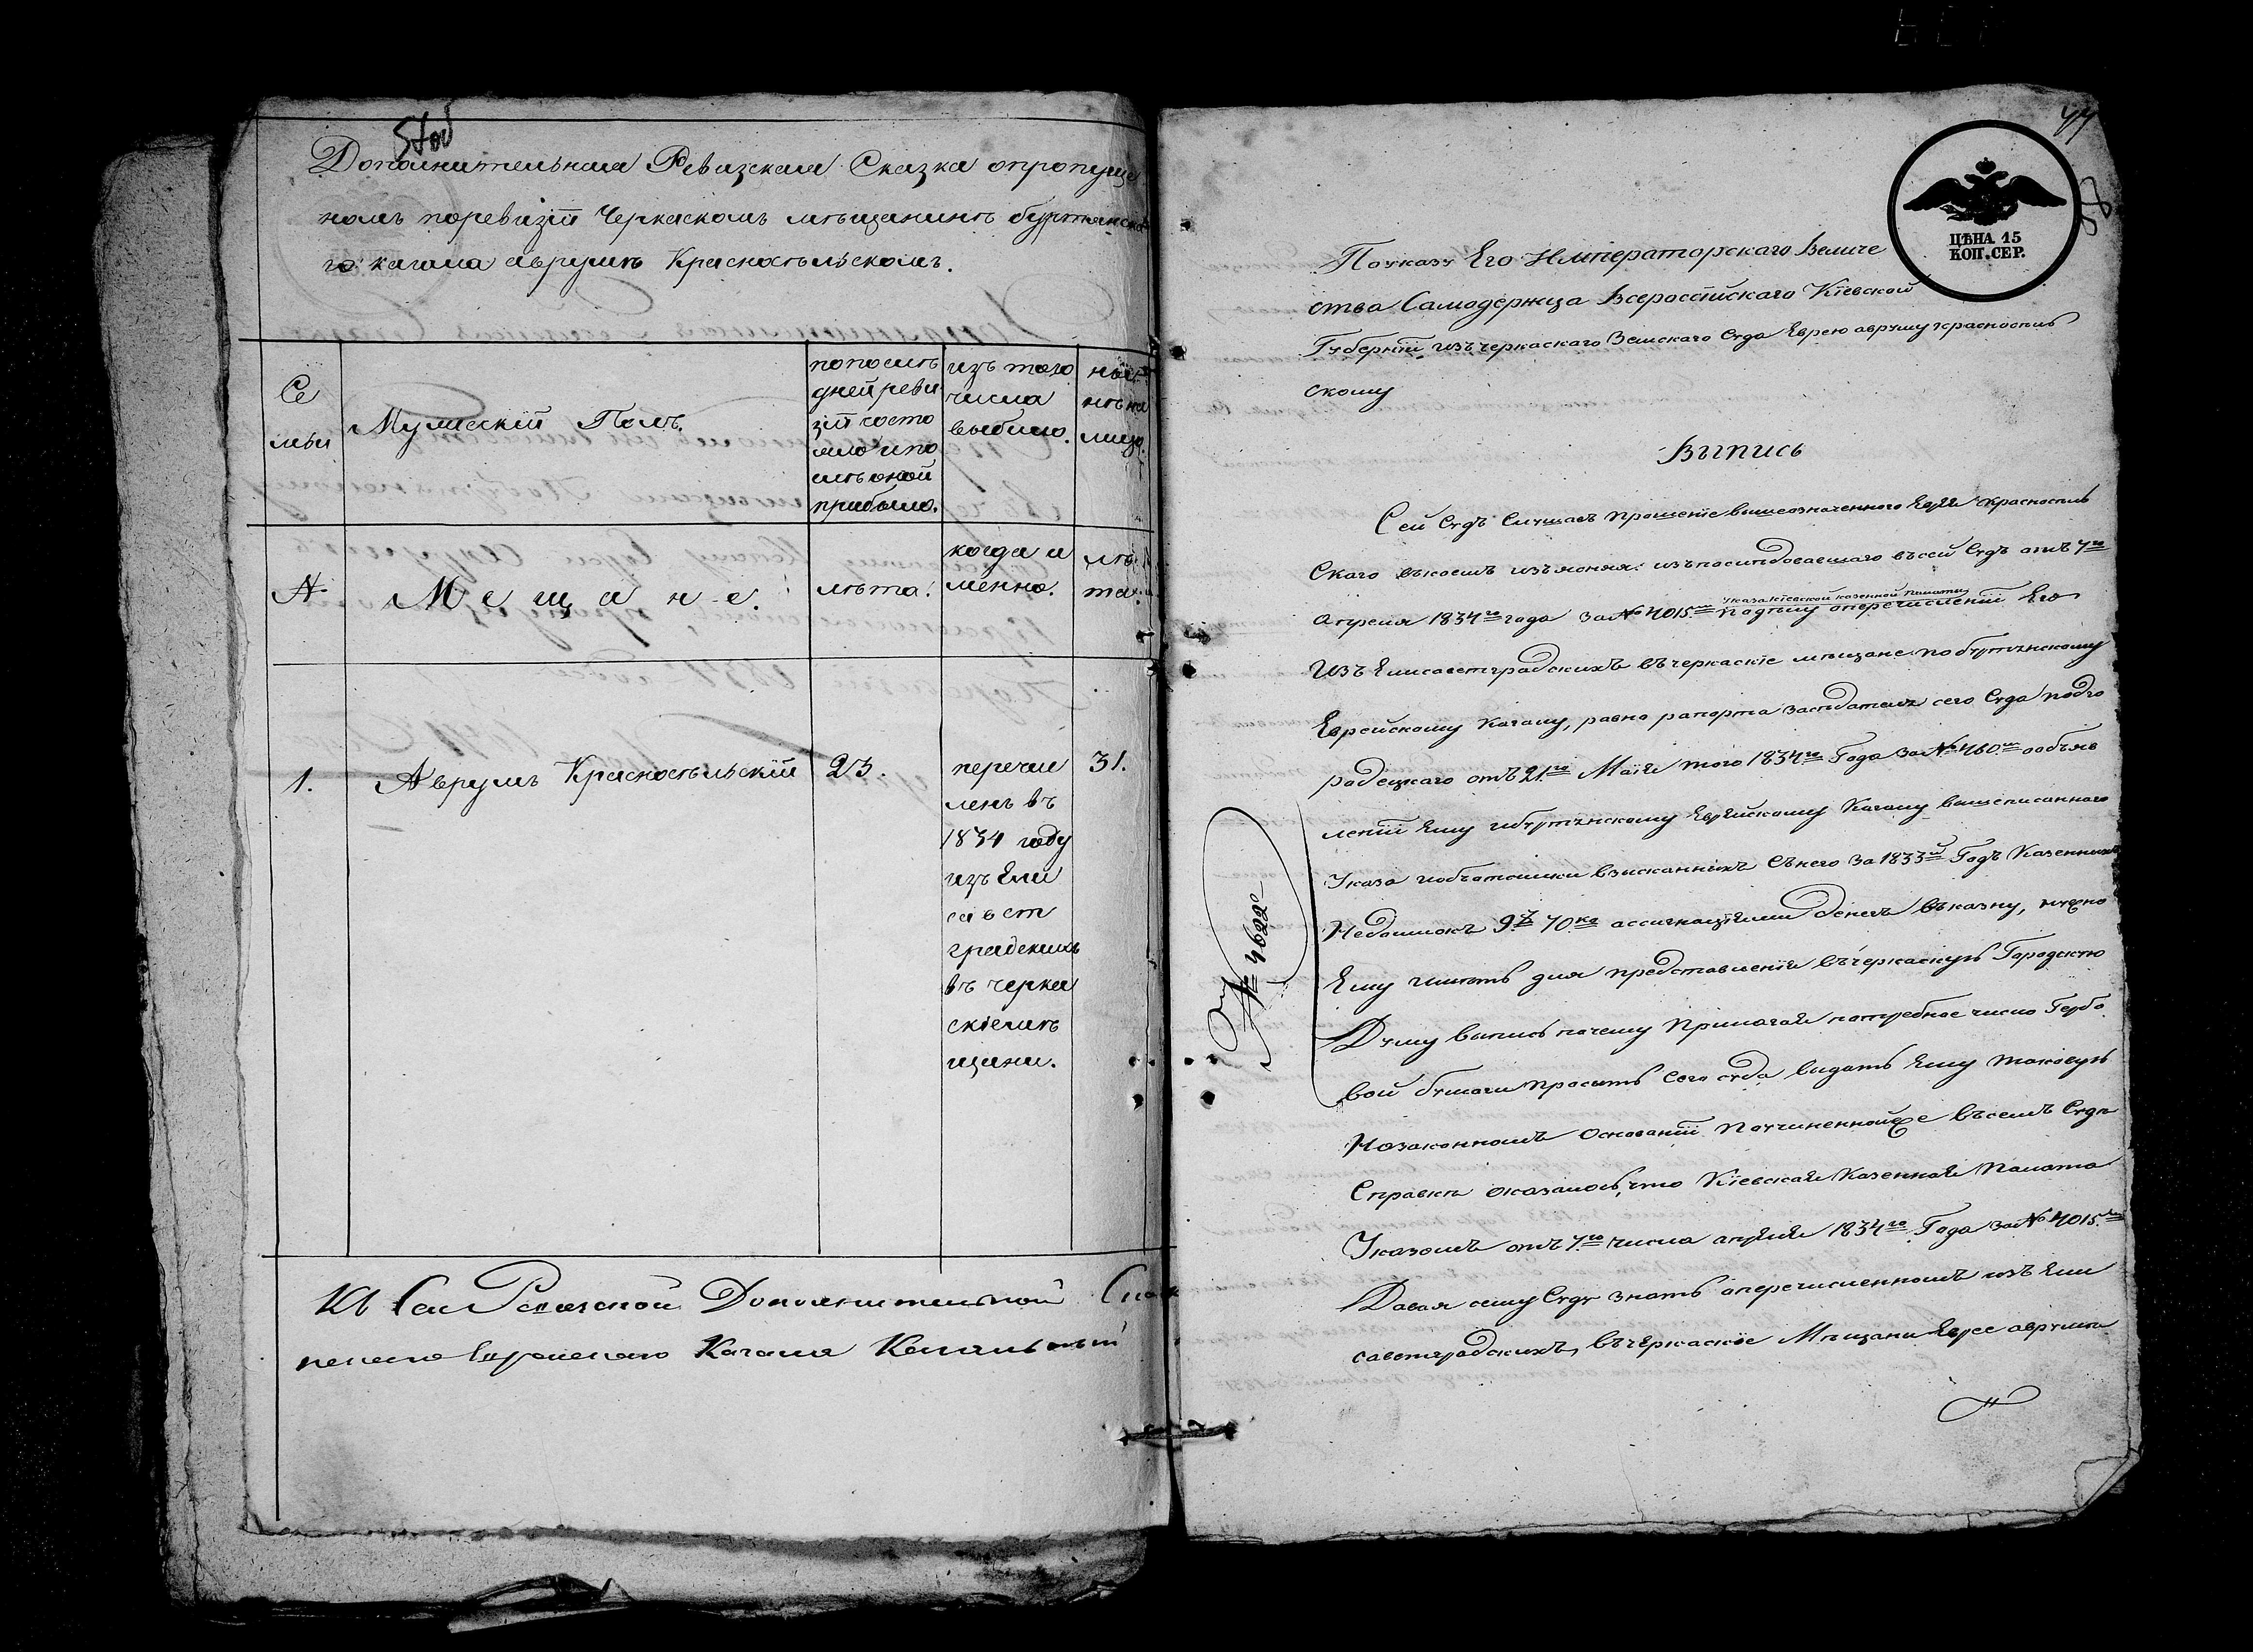 57об
Дополнительная Ревизская Сказка опропуще
номъ поревизіи Черкаскомъ мѣщанинѣ буртянска
го кагала аврумѣ Красносѣльскомъ.
Се
мьи
Мужескій Полъ.
попослѣ
дней реви
зіи состо
яло ипо
слѣ оной
прибыло.
изъ того
числа
выбыло.
нынѣ
на
лицо
№
Мещане.
лѣта.
когда и
менно.
лѣ
та.
1.
Аврумъ Красносѣльскій
23.
перечис
ленъ въ
1834 году
изъ Ели
савет
градскихъ
въ черка
скіе мѣ
щани.
31.
Къ Сей Ревизской Дополнительной
Еврейского Кагала
ЦѢНА 15
КОП. СЕР.
Поуказу Его Императорскаго Величе
ства Самодержца Всероссійскаго Кіевской
Губерніи изъ черкаскаго Земскаго Суда Еврею авруму красносѣль
скому
Выпись
Сей Судъ Слушавъ прошеніе вышеозначенного Еврея Красносѣль
Скаго вкоемъ изъясняя: изъ последовавшаго въ сей Судъ отъ 7го
Апреля 1834го года за № 4015мъ указа Кіевской казенной Палаты поделу оперечисленіи Его
Изъ Елисаветградскихъ въ черкаскіе мѣщане по буртянскому
Еврейскому Кагалу, равно рапорта заседателя сего Суда подго
радецкаго отъ 21го Маія того 1834го Года за № 460мъ ообъяв
леніи Ему и буртянскому Еврейскому Кагалу вышеписанного
Указа и объ отсылки взысканныхъ Снего за 1833й Годъ Казенныхъ
Недоимокъ 9р 70ка ассигнаціями денегъ въ казну, нужно
Ему иметь для представленія въ черкаскую Городскую
Думу выпись почему Прилагая потребное число Гербо
вой бумаги просить Сего суда выдать Ему таковую
Назаконномъ Основаніи Поучиненной же въ семъ Суде
Справки оказалось, что Кіевская Казенная Палата
Указомъ отъ 7го числа апреля 1834го Года за № 4015мъ
Давая сему Суду знать оперечисленномъ изъ Ели
саветградскихъ, въ черкаскіе Мѣщани Еврее аврумѣ
№ 4622